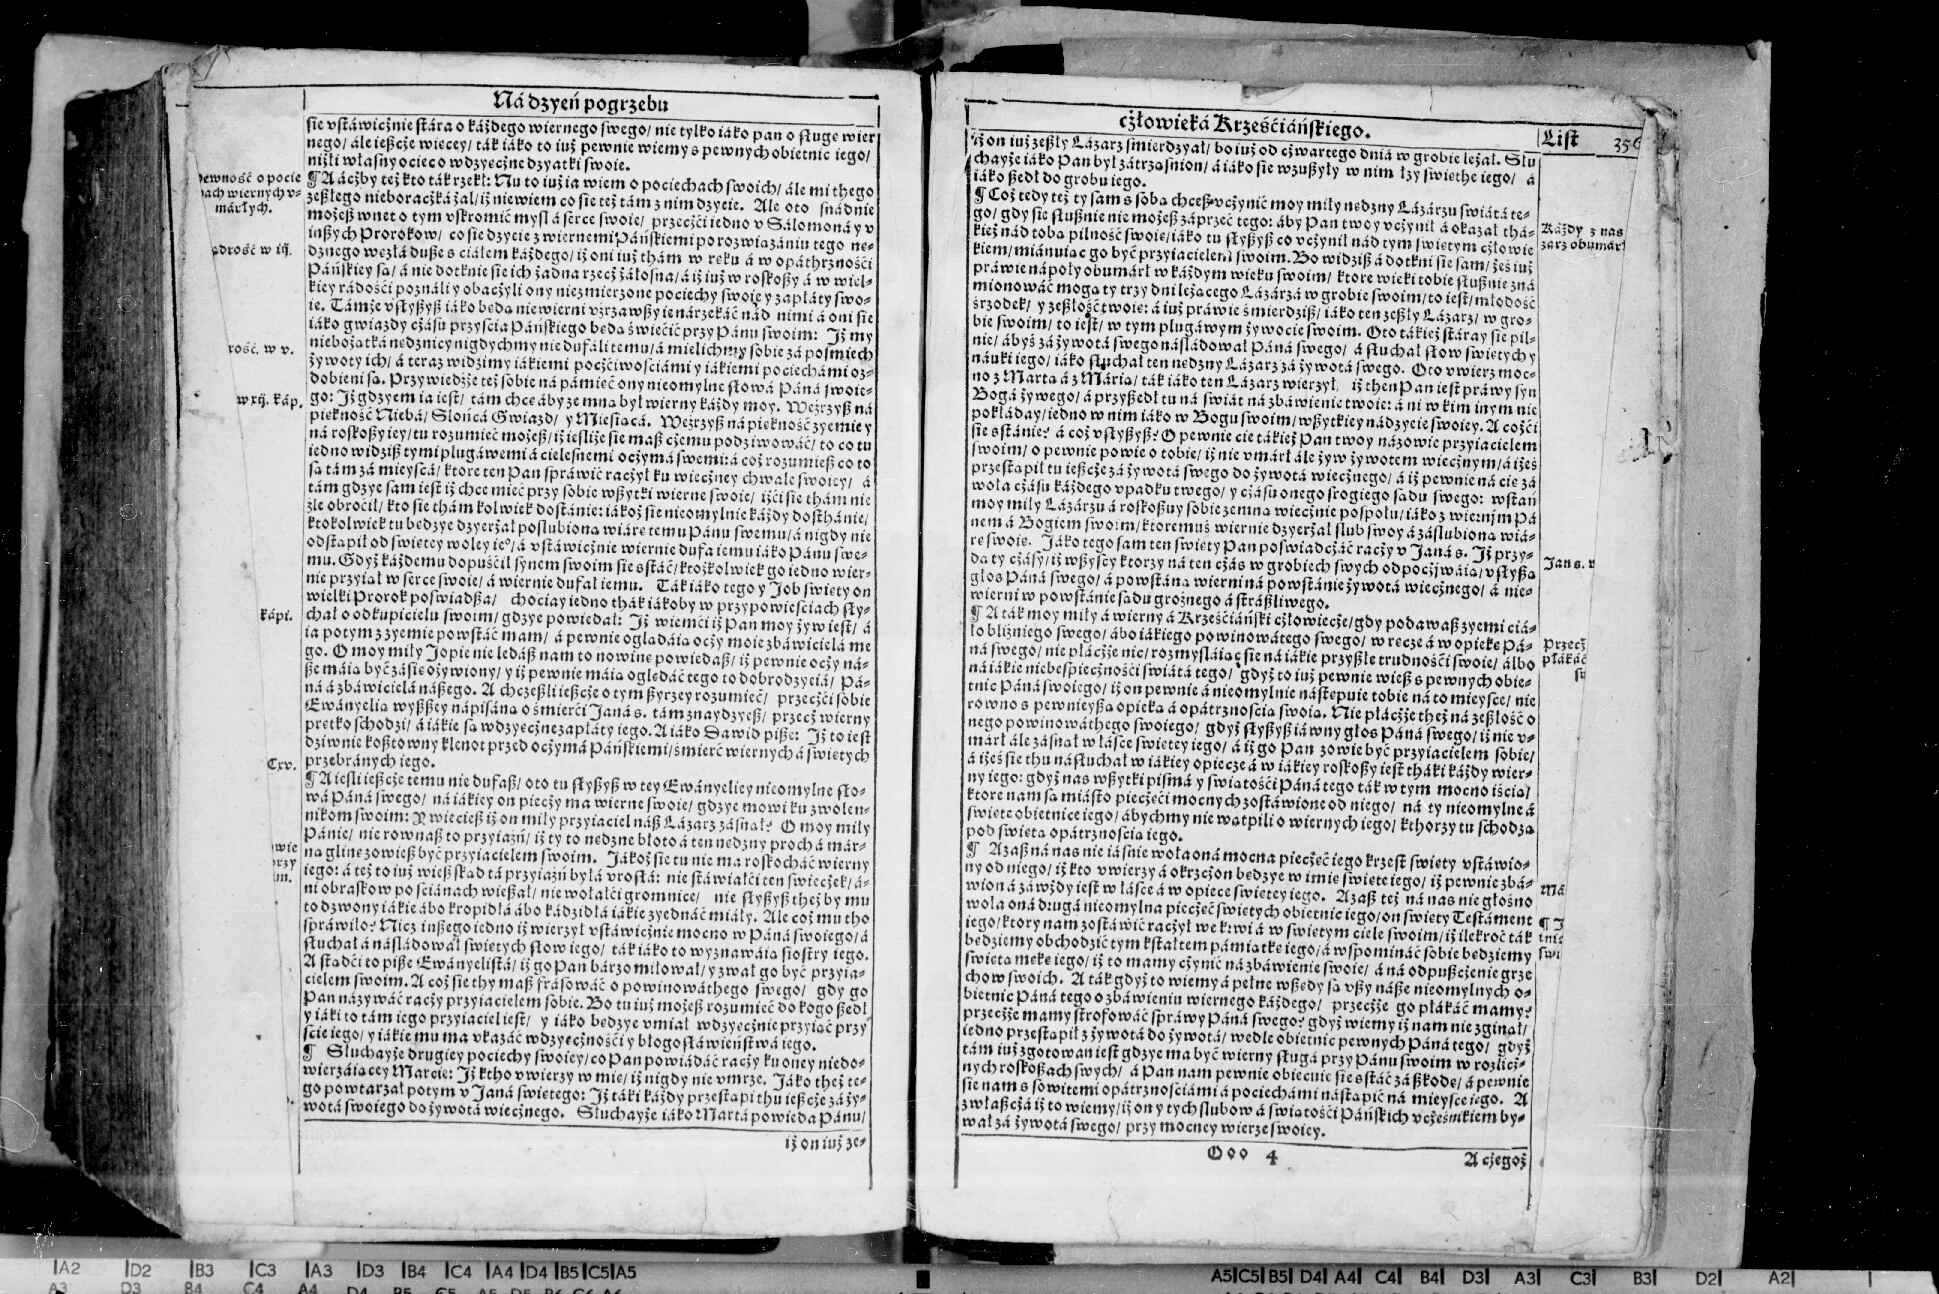 Ná dzyeń pogrzebu
sie vstáwicżnie stára o káżdego wiernego swego/ nie tylko iáko pan o sługę wier
nego/ ále iesżcże więcey/ ták iáko to iuż pewnie wiemy s pewnych obietnic iego/
niżli własny ociec o wdzyęcżne dzyatki swoie.
¶ A ácżby też kto ták rzekł: Nu to iuż ia wiem o pociechach swoich/ ále mi thego
zeszłego nieboracżká żal/ iż niewiem co sie też tám z nim dzyeie. Ale oto snádnie
możesz wnet o tym vskromić mysl á serce swoie/ przecżći iedno v Sálomoná y v
inszych Prorokow/ co sie dzyeie z wiernemi Páńskiemi po rozwiązániu tego nę-
dznego węzłá dusze s ciáłem káżdego/ iż oni iuż thám w ręku á w opáthrznośći
Páńskiey są/ á nie dotknie sie ich żadna rzecż żáłosna/ á iż iuż w roskoszy á w wiel-
kiey rádośći poználi y obacżyli ony niezmierzone pociechy swoie y zapłáty swo-
ie. Támże vsłyszysz iáko będą niewierni vżrzawszy ie nárzekáć nád nimi á oni sie
iáko gwiazdy cżásu przyscia Páńskiego będą świećić przy Pánu swoim: Iż my
niebożątká nędznicy nigdychmy nie dufáli temu/ á mielichmy sobie zá pośmiech
żywoty ich/ á teraz widzimy iákiemi pocżćiwościámi y iákiemi pociechámi oz-
dobieni są. Przywiedźże też sobie ná pámięć ony nieomylne słowá Páná swoie-
go: Iż gdzyem ia iest/ tám chcę áby ze mną był wierny káżdy moy. Weźrzysz ná
piękność Niebá/ Słońcá Gwiazd/ y Miesiącá. Weźrzysz ná piękność zyemie y
ná roskoszy iey/ tu rozumieć możesz/ iż iesliże sie masz cżemu podziwowáć/ to co tu
iedno widzisz tymi plugáwemi á cielesnemi ocżymá swemi: á coż rozumiesz co to
są tám zá mieyscá/ ktore ten Pan spráwić racżył ku wiecżney chwale swoiey/ á
tám gdzye sam iest iż chce mieć przy sobie wszytki wierne swoie/ iżći sie thám nie
źle obroćił/ kto sie thám kolwiek dostánie: iákoż sie nieomylnie káżdy dosthánie/
ktokolwiek tu będzye dzyerżał poslubioną wiárę temu Pánu swemu/ á nigdy nie
odstąpił od swiętey woley ie°/ á vstáwicżnie wiernie dufa iemu iáko Pánu swe-
mu. Gdyż káżdemu dopuśćił synem swoim sie sstáć/ ktożkolwiek go iedno wier-
nie przyiął w serce swoie/ á wiernie dufał iemu. Ták iáko tego y Job swięty on
wielki Prorok poświadsza/ chociay iedno thák iákoby w przypowieściach sły-
chał o odkupicielu swoim/ gdzye powiedał: Iż wiemći iż Pan moy żyw iest/ á
ia potym z zyemie powstáć mam/ á pewnie oglądáią ocży moie zbáwicielá me
go. O moy miły Jopie nie ledász nam to nowinę powiedasz/ iż pewnie ocży ná-
sze máią być zásię ożywiony/ y iż pewnie máią oględáć tego to dobrodzyeiá/ Pá-
ná á zbáwicielá nászego. A chczeszli iesżcże o tym szyrzey rozumieć/ przecżći sobie
Ewányelią wyszszey nápisáną o śmierći Janá s. tám znaydzyesz/ przecż wierny
prętko schodzi/ á iákie są wdzyęcżne zapłáty iego. A iáko Dawid pisze: Iż to iest
dziwnie kosztowny klenot przed ocżymá Páńskiemi/ śmierć wiernych á swiętych
przebránych iego.
¶ A iesli iesżcże temu nie dufasz/ oto tu słyszysz w tey Ewányeliey nieomylne sło-
wá Páná swego/ ná iákiey on piecży ma wierne swoie/ gdzye mowi ku zwolen-
nikom swoim: A wiecież iż on miły przyiaciel nász Lázarz zásnął? O moy miły
Pánie/ nie rownasz to przyiaźń/ iż ty to nędzne błoto á ten nędzny proch á már-
ną glinę zowiesz być przyiacielem swoim. Jákoż sie tu nie ma roskocháć wierny
iego: á też to iuż wiesz skąd tá przyiaźń byłá vrosłá: nie stáwiałći ten swiecżek/ á-
ni obrásków po scianách wieszał/ nie wołałći gromnice/ nie słyszysz theż by mu
to dzwony iákie ábo kropidłá ábo kádzidłá iákie zyednáć miáły. Ale coż mu tho
spráwiło? Nicż inszego iedno iż wierzył vstáwicżnie mocno w Páná swoiego/ á
słuchał á násládował swiętych słow iego/ ták iáko to wyznawáią siostry iego.
A stądći to pisze Ewányelistá/ iż go Pan bárzo miłował/ y zwał go być przyia-
cielem swoim. A coż sie thy masz frásowáć o powinowáthego swego/ gdy go
Pan názywáć racży przyiacielem sobie. Bo tu iuż możesz rozumieć do kogo szedł
y iáki to tám iego przyiaciel iest/ y iáko będzye vmiał wdzyęcżnie przyiąć przy
scie iego/ y iákie mu ma vkázáć wdzyęcżnośći y błogosłáwieństwá iego.
¶ Słuchayże drugiey pociechy swoiey/ co Pan powiádáć racży ku oney niedo-
wierzáiącey Marcie: Iż ktho vwierzy w mię/ iż nigdy nie vmrze. Jáko theż te-
go powtarzał potym v Janá swiętego: Iż táki káżdy przestąpi thu iesżcże zá ży-
wotá swoiego do żywotá wiecżnego. Słuchayże iáko Martá powieda Pánu/
iż on iuż ze-
pewność o pocie
chach wiernych v-
márłych.
ądrość w iij.
rość. w v.
w xij. káp.
kápi.
Cxv.
wie
przy
im.
cżłowieká Krześćiáńskiego.
List 356
iż on iuż zeszły Lázarz śmierdzyał/ bo iuż od cżwartego dniá w grobie leżał. Słu
chayże iáko Pan był zátrząsnion/ á iáko sie wzuszyły w nim łzy swięthe iego/ á
iáko szedł do grobu iego.
¶ Coż tedy też ty sam s sobą chcesz vcżynić moy miły nędzny Lázárzu świátá te-
go/ gdy sie słusznie nie możesz záprzeć tego: áby Pan twoy vcżynił á okazał thá-
kież nád tobą pilność swoię/ iáko tu słyszysz co vcżynił nád tym swiętym cżłowie
kiem/ miánuiąc go być przyiacielem swoim. Bo widzisz á dotkni sie sam/ żeś iuż
práwie nápoły obumarł w káżdym wieku swoim/ ktore wieki tobie słusznie zná
mionowáć mogą ty trzy dni leżącego Lázárzá w grobie swoim/ to iest/ młodość
śrzodek/ y zeszłość twoię: á iuż práwie śmierdzisz/ iáko ten zeszły Lázarz/ w gro-
bie swoim/ to iest/ w tym plugáwym żywocie swoim. Oto tákież stáray sie pil-
nie/ ábyś zá żywotá swego násládował Páná swego/ á słuchał słow swiętych y
náuki iego/ iáko słuchał ten nędzny Lázarz zá żywotá swego. Oto vwierz moc-
no z Martą á z Márią/ ták iáko ten Lázarz wierzył/ iż then Pan iest práwy syn
Bogá żywego/ á przyszedł tu ná świát ná zbáwienie twoie: á ni w kim inym nie
pokłáday/ iedno w nim iáko w Bogu swoim/ wszytkiey nádzyeie swoiey. A cożći
sie sstánie? á coż vsłyszysz? O pewnie cię tákież Pan twoy názowie przyiacielem
swoim/ o pewnie powie o tobie/ iż nie vmárł ále żyw żywotem wiecżnym/ á iżeś
przestąpił tu iesżcże zá żywotá swego do żywotá wiecżnego/ á iż pewnie ná cię zá
woła cżásu káżdego vpadku twego/ y cżásu onego srogiego sądu swego: wstań
moy miły Lázárzu á roskoszuy sobie ze mną wiecżnie pospołu/ iáko z wiernym Pá
nem á Bogiem swoim/ ktoremuś wiernie dzyerżał slub swoy á záslubioną wiá-
rę swoię. Jáko tego sam ten swięty Pan poświadcżáć racży v Janá s. Iż przy-
dą cżásy/ iż wszyscy ktorzy ná ten cżás w grobiech swych odpocżywáią/ vsłyszą
głos Páná swego/ á powstáną wierni ná powstánie żywotá wiecżnego/ á nie-
wierni w powstánie sądu groźnego á strászliwego.
¶ A ták moy miły á wierny á Krześćiáński cżłowiecże/ gdy podawasz zyemi ciá-
ło bliźniego swego/ ábo iákiego powinowátego swego/ w ręce á w opiekę Pá-
ná swego/ nie płácżże nic/ rozmysláiąc sie ná iákie przyszłe trudnośći swoie/ álbo
ná iákie niebespiecżnośći świátá tego/ gdyż to iuż pewnie wiesz s pewnych obie-
tnic Páná swoiego/ iż on pewnie á nieomylnie nástępuie tobie ná to mieysce/ nie
rowno s pewnieyszą opieką á opátrznością swoią. Nie płácżże theż ná zeszłość o
nego powinowáthego swoiego/ gdyż słyszysz iáwny głos Páná swego/ iż nie v-
márł ále zásnął w łásce swiętey iego/ á iż go Pan zowie być przyiacielem sobie/
á iżeś sie thu násłuchał w iákiey opiece á w iákiey roskoszy iest tháki káżdy wier-
ny iego: gdyż nas wszytki pismá y świátośći Páná tego ták w tym mocno iśćią/
ktore nam są miásto piecżęći mocnych zostáwione od niego/ ná ty nieomylne á
swięte obietnice iego/ ábychmy nie wątpili o wiernych iego/ kthorzy tu schodzą
pod swiętą opátrznością iego.
¶ Azasz ná nas nie iásnie woła oná mocna piecżęć iego krzest swięty vstáwio-
ny od niego/ iż kto vwierzy á okrzcżon będzye w imię swięte iego/ iż pewnie zbá-
wion á záwżdy iest w łásce á w opiece swiętey iego. Azasz też ná nas nie głośno
woła oná druga nieomylna piecżęć swiętych obietnic iego/ on swięty Testáment
iego/ ktory nam zostáwić racżył we krwi á w swiętym ciele swoim/ iż ilekroć ták
będziemy obchodzić tym kstałtem pámiątkę iego/ á wspomináć sobie będziemy
swiętą mękę iego/ iż to mamy cżynić ná zbáwienie swoie/ á ná odpuszcżenie grze
chow swoich. A ták gdyż to wiemy á pełne wszędy są vszy násze nieomylnych o-
bietnic Páná tego o zbáwieniu wiernego káżdego/ przecżże go płákáć mamy?
przecżże mamy strofowáć spráwy Páná swego? gdyż wiemy iż nam nie zginął/
iedno przestąpił z żywotá do żywotá/ wedle obietnic pewnych Páná tego/ gdyż
tám iuż zgotowan iest gdzye ma być wierny sługá przy Pánu swoim w rozlicż-
nych roskoszach swych/ á Pan nam pewnie obiecuie sie sstáć zá szkodę/ á pewnie
sie nam s sowitemi opátrznościámi á pociechámi nástąpić ná mieysce iego. A
zwłaszcżá iż to wiemy/ iż on y tych slubow á świátośći Páńskich vcżesnikiem by-
wał zá żywotá swego/ przy mocney wierze swoiey.
Ooo 4
A cżegoż
Káżdy z nas
zarz obumarł
Jan s. v
Przecż
płákáć
sw
Má
¶ J
tnic
swi
A2 D2 B3 C3 A3 D3 B4 C4 A4 D4 B5 C5 A5
A5 C5 B5 D4 A4 C4 B4 D3 A3 C3 B3 D2 A2